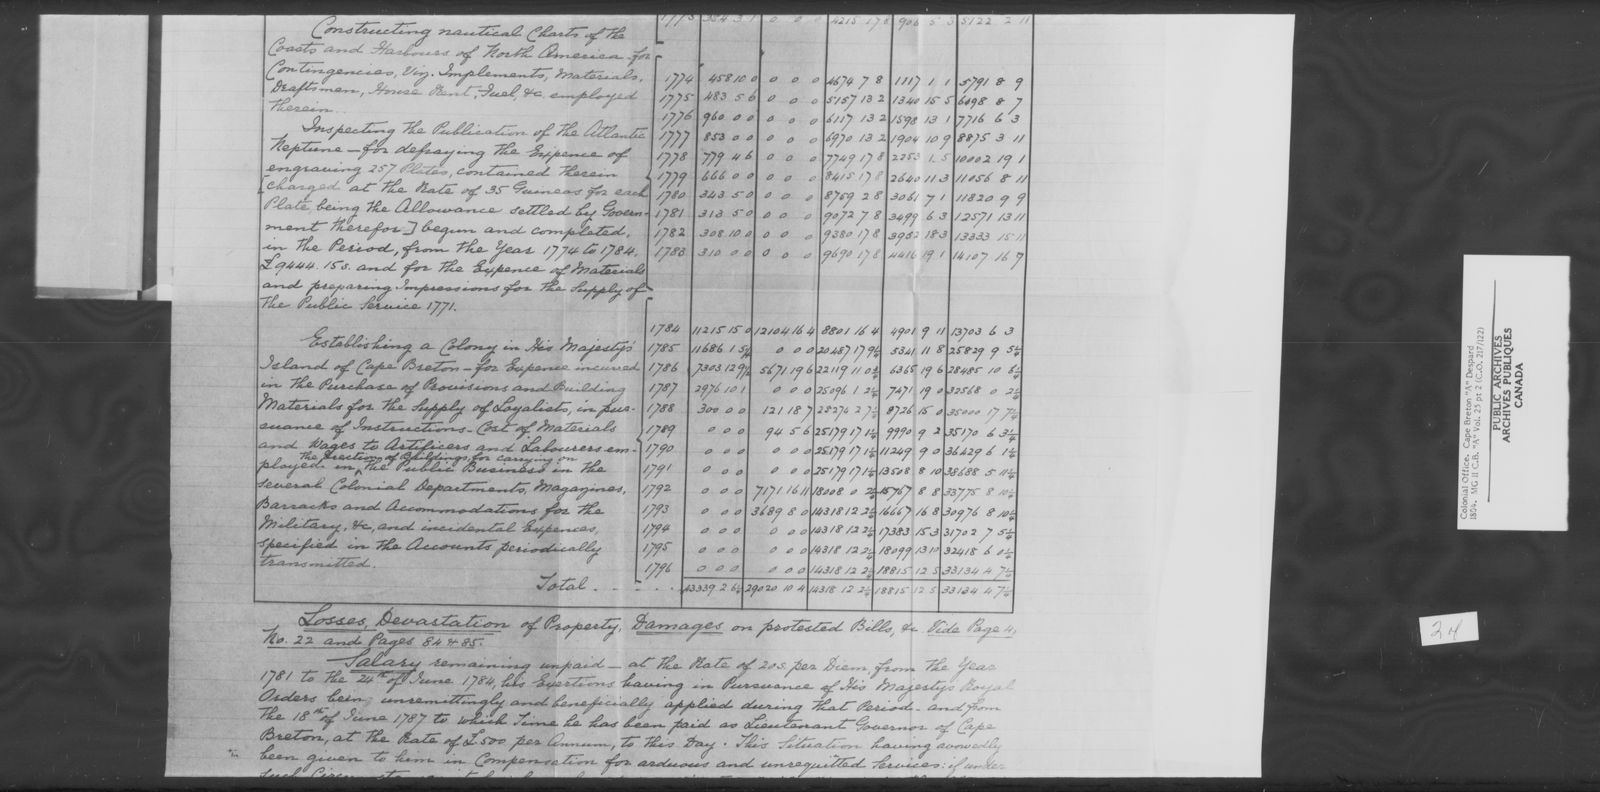 1773 354 3 1 0 0 0 4215 17 8 906 5 3 5122 2 11
Constructing nautical Charts of the
Coasts and Harbours of North America - for
Contingencies, Viz. Implements, Materials,
Draftsmen, House Rent, Fuel, &c. employed
therein.
1774 458 10 0 0 0 0 4674 7 8 1117 1 1 5791 8 9
1775 483 5 6 0 0 0 5157 13 2 1340 15 5 6498 8 7
1776 960 0 0 0 0 0 6117 13 2 1598 13 1 7716 6 3
Inspecting the Publication of the Atlantic
Neptune - for defraying the Expence of
engraving 257 Plates, contained therein
[charged at the Rate of 35 Guineas for each
Plate, being the Allowance settled by Govern-
ment therefor] begun and completed,
in the Period, from the Year 1774 to 1784,
£9444. 15s. and for the Expence of Materials
and preparing Impressions for the Supply of
the Public Service 1771.
1777 853 0 0 0 0 0 6970 13 2 1904 10 9 8875 3 11
1778 779 4 6 0 0 0 7749 17 8 2253 1 5 10002 19 1
1779 666 0 0 0 0 0 8415 17 8 2640 11 3 11056 8 11
1780 343 5 0 0 0 0 8759 2 8 3061 7 1 11820 9 9
1781 313 5 0 0 0 0 9072 7 8 3499 6 3 12571 13 11
1782 308 10 0 0 0 0 9380 17 8 3952 18 3 13333 15 11
1783 310 0 0 0 0 0 9690 17 8 4416 19 1 14107 16 7
1784 11215 15 0 12104 16 4 8801 16 4 4901 9 11 13703 6 3
Establishing a Colony in His Majesty's
Island of Cape Breton - for Expence incurred
in the Purchase of Provisions and Building
Materials for the Supply of Loyalists, in pur-
suance of Instructions - Cost of Materials
and Wages to Artificers and Labourers em-
the Erection of Buildings, for carrying on
ployed in ^ the Public Business in the
several Colonial Departments, Magazines,
Barracks and Accommodations for the
Military, &c, and incidental Expences,
specified in the Accounts periodically
transmitted.
1785 11686 1 0 0 0 20487 17 9½ 5341 11 8 25829 9 5½
1786 7303 12 9½ 5671 19 6 22119 11 0¾ 6365 19 6 28485 10 6¾
1787 2976 10 1 0 0 0 25096 1 2 7471 19 0 32568 0 2
1788 300 0 0 121 18 7 25274 2 7 8726 15 0 35000 17 7
1789 0 0 0 94 5 6 25179 17 1 9990 9 2 35170 6 3
1790 0 0 0 0 0 0 25179 17 1 11249 9 0 36429 6 1
1791 0 0 0 0 0 0 25179 17 1 13508 8 10 38688 5 11
1792 0 0 0 7171 16 11 18008 0 2 15767 8 8 33775 8 10
1793 0 0 0 3689 8 0 14318 12 2 16667 16 8 30976 8 10
1794 0 0 0 0 0 0 14318 12 2 17383 15 3 31702 7 5
1795 0 0 0 0 0 0 14318 12 2 18099 13 10 32418 6 0
1796 0 0 0 0 0 0 14318 12 2 18815 12 5 33134 4 7
Total - - - - - 43339 2 6 29020 10 4 14318 12 2 18815 12 5 33134 4 7
Losses, Devastation of Property, Damages on protested Bills, &c Vide Page 4,
No. 22 and Pages 84 & 85.
Salary remaining unpaid - at the Rate of 20s. per Diem, from the Year
1781 to the 24th of June 1784, his Exertions having in Pursuance of His Majesty's Royal
Orders being unremittingly and beneficially applied during that Period - and from
the 18th of June 1787 to which Time he has been paid as Lieutenant Governor of Cape
Breton, at the Rate of £500 per Annum, to this Day. This Situation having avowedly
been given to him in Compensation for arduous and unrequitted Services: if under
Colonial Office. Cape Breton "A" Despard
1804. MG 11 C.B. "A" Vol. 25 pt 2 (C.O. 217/122)
PUBLIC ARCHIVES
ARCHIVES PUBLIQUES
CANADA
24